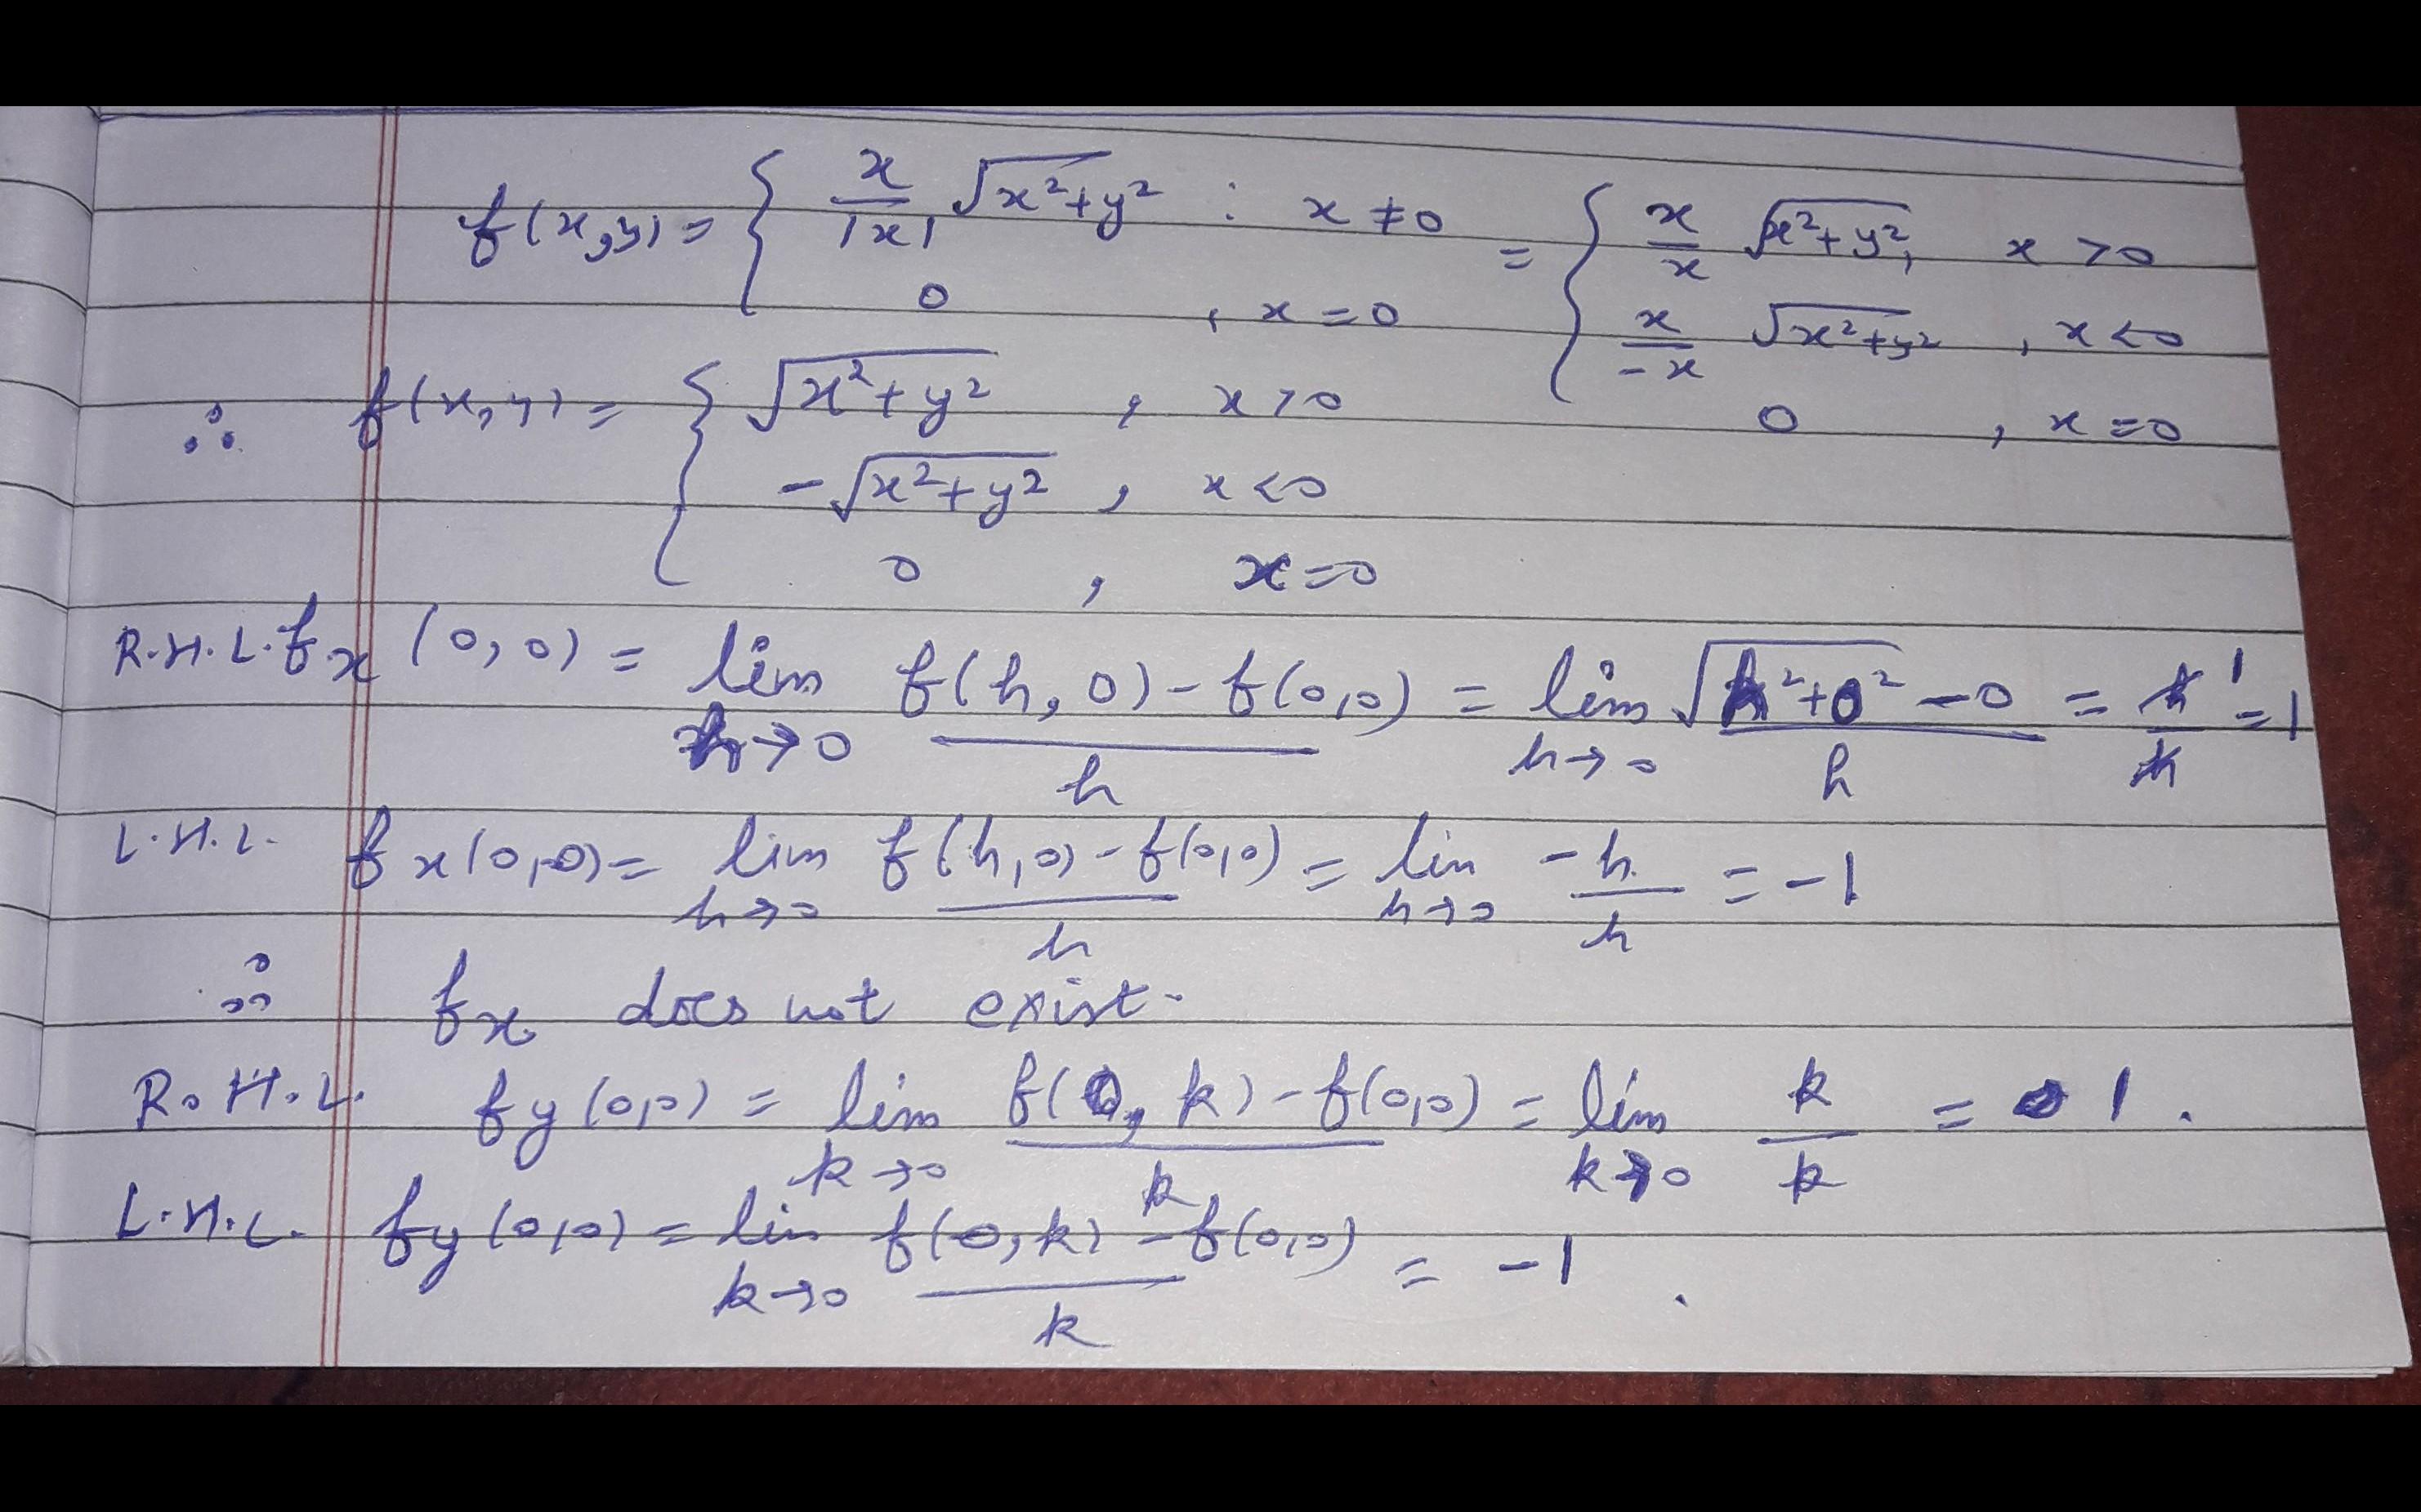 f(x,y) = { x/|x| √(x²+y²) : x ≠ 0 ; 0 , x = 0 = { x/x √(x²+y²), x > 0 ; x/-x √(x²+y²) , x < 0 ; 0 , x = 0
∴ f(x,y) = { √(x²+y²) , x > 0
-√(x²+y²) , x < 0
0 , x = 0
R.H.L. fx (0,0) = lim h→0 (f(h,0) - f(0,0))/h = lim h→0 (√(h²+0²) - 0)/h = h/h 1 = 1
L.H.L. fx(0,0) = lim h→0 (f(h,0) - f(0,0))/h = lim h→0 -h/h = -1
∴ fx does not exist.
R.H.L. fy(0,0) = lim k→0 (f(0,k) - f(0,0))/k = lim k→0 k/k = 1.
L.H.L. fy(0,0) = lim k→0 (f(0,k) - f(0,0))/k = -1.